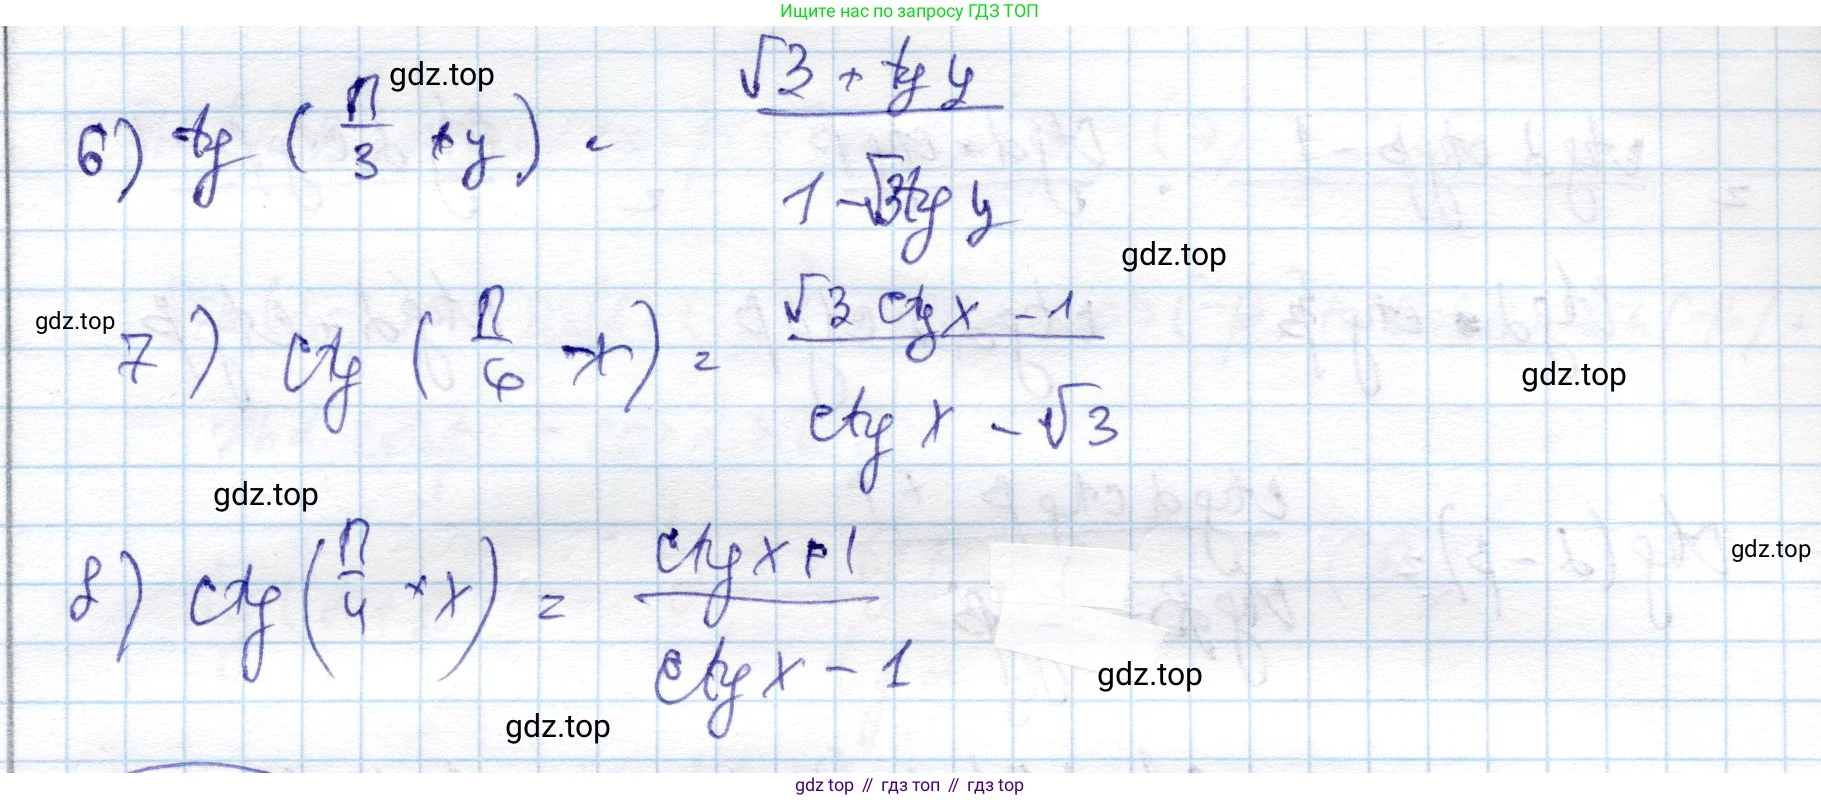 Ищите нас по запросу ГДЗ ТОП
gdz.top
6) tg (π/3 + y) = (√3 + tg y)/(1 - √3 tg y)
gdz.top
gdz.top
7) ctg (π/6 - x) = (√3 ctg x - 1)/(ctg x - √3)
gdz.top
gdz.top
8) ctg (π/4 + x) = (ctg x + 1)/(ctg x - 1)
gdz.top
gdz.top
gdz.top
gdz top // гдз топ // gdz top